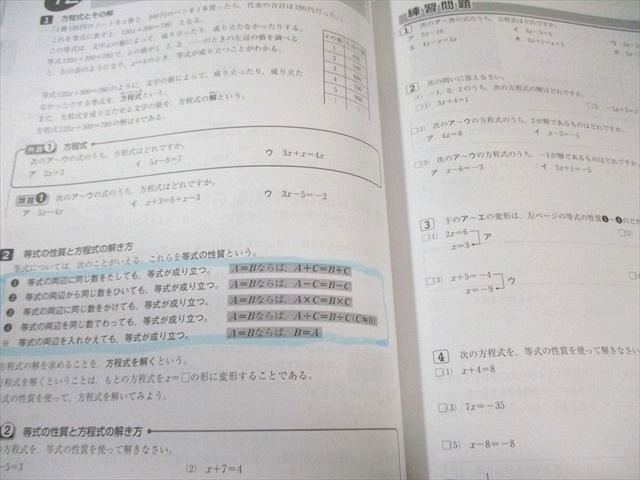 1 方程式とその解
「1冊120円のノートをx冊と、300円のペンを1本買ったら、代金の合計は780円だった。」
これを等式に表すと、120x+300=780 となる。
この等式は、文字xの値によって、成り立ったり、成り立たなかったりする。
等式120x+300=780で、xの値が1, 2, 3, ……のときの左辺の値を調べる
と、右の表のようになり、x=4のとき、等式が成り立つことがわかる。
等式120x+300=780のように、文字の値によって、成り立ったり、成り立た
なかったりする等式を、方程式という。
また、方程式を成り立たせる文字の値を、方程式の解という。
方程式120x+300=780の解は4である。
例題1 方程式
次のア〜ウの式のうち、方程式はどれですか。
ア 2x+3 イ 5x-8=7 ウ 3x+x=4x
類題1 次のア〜ウの式のうち、方程式はどれですか。
ア 5x-4x イ x+3=6+x-3 ウ 3x-5=-2
2 等式の性質と方程式の解き方
等式については、次のことがいえる。これらを等式の性質という。
❶ 等式の両辺に同じ数をたしても、等式が成り立つ。 A=Bならば、A+C=B+C
❷ 等式の両辺から同じ数をひいても、等式が成り立つ。 A=Bならば、A-C=B-C
❸ 等式の両辺に同じ数をかけても、等式が成り立つ。 A=Bならば、A×C=B×C
❹ 等式の両辺を同じ数でわっても、等式が成り立つ。 A=Bならば、A÷C=B÷C(C≠0)
※ 等式の両辺を入れかえても、等式が成り立つ。 A=Bならば、B=A
方程式の解を求めることを、方程式を解くという。
方程式を解くということは、もとの方程式をx=□の形に変形することである。
の性質を使って、方程式を解いてみよう。
2 等式の性質と方程式の解き方
の方程式を、等式の性質を使って解きなさい。
-5=3 (2) x+7=4
練習問題
1 次のア〜カの式のうち、方程式はどれですか。
ア 5x-10 イ 3x-5=4
エ 4x-x=3x オ 2x+1=x+2
2 次の問いに答えなさい。
(1) -1, 0, 1のうち、次の方程式の解はどれですか。
□① 3x+4=1
□(2) 次のア〜ウの方程式のうち、2が解であるものはどれですか。
ア 4x=8 イ x-3=-5
□(3) 次のア〜ウの方程式のうち、-3が解であるものはどれですか。
ア x-6=-3 イ 2x+1=-5
3 下のア〜エの変形は、左ページの等式の性質❶〜❹のどれ
□(1) 2x=6 ア □(2)
x=3
□(3) x+5=-4 ウ
x=-9
4 次の方程式を、等式の性質を使って解きなさい
□(1) x+4=8
□(3) 7x=-35
□(5) x-8=-8